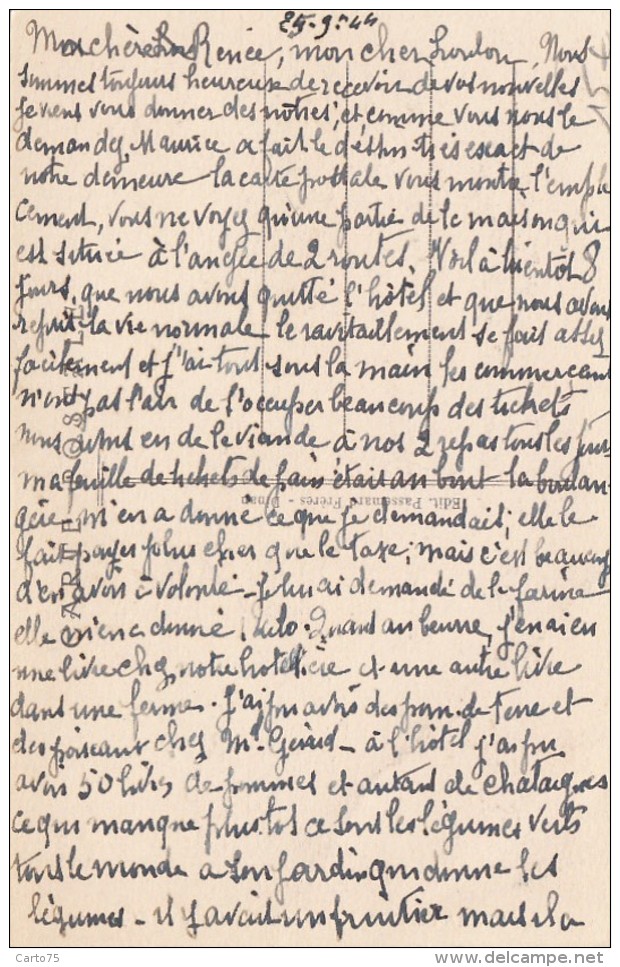 25-9-44
Ma chère Renée, mon cher Loulou, Nous
sommes toujours heureux de recevoir de vos nouvelles
je viens vous donner des nôtres, et comme vous nous le
demandez, Maurice a fait le dessin très exact de
notre demeure la carte postale vous montre l'empla
cement, vous ne voyez qu'une partie de la maison qui
est située à l'angle de 2 routes. Voilà bientôt 8
jours, que nous avons quitté l'hôtel et que nous avons
repris la vie normale le ravitaillement se fait assez
facilement et j'ai tout sous la main les commerçants
n'ont pas l'air de l'occuper beaucoup des tickets
nous avons eu de la viande à nos 2 repas tous les jours
ma feuille de tickets de pain était au bout la boulan
gère m'en a donné ce que je demandait; elle le
fait payer plus cher que la taxe; mais c'est beaucoup
d'en avoir à volonté - je lui ai demandé de la farine
elle m'en a donné 1 kilo. Quant au beurre, j'en ai eu
une livre chez notre hotelière et une autre livre
dans une ferme. J'ai pu avoir des pom. de terre et
des poireaux chez Md. Gérard - à l'hôtel j'ai pu
avoir 50 livres de pommes et autant de chataignes
ce qui manque plustot ce sont les légumes verts
tout le monde a son jardin qui donne les
légumes - il y avait un fruitier mais il a
CARTE POSTALE
Edit. Passemard Frères - Dinan
Carto75
www.delcampe.net